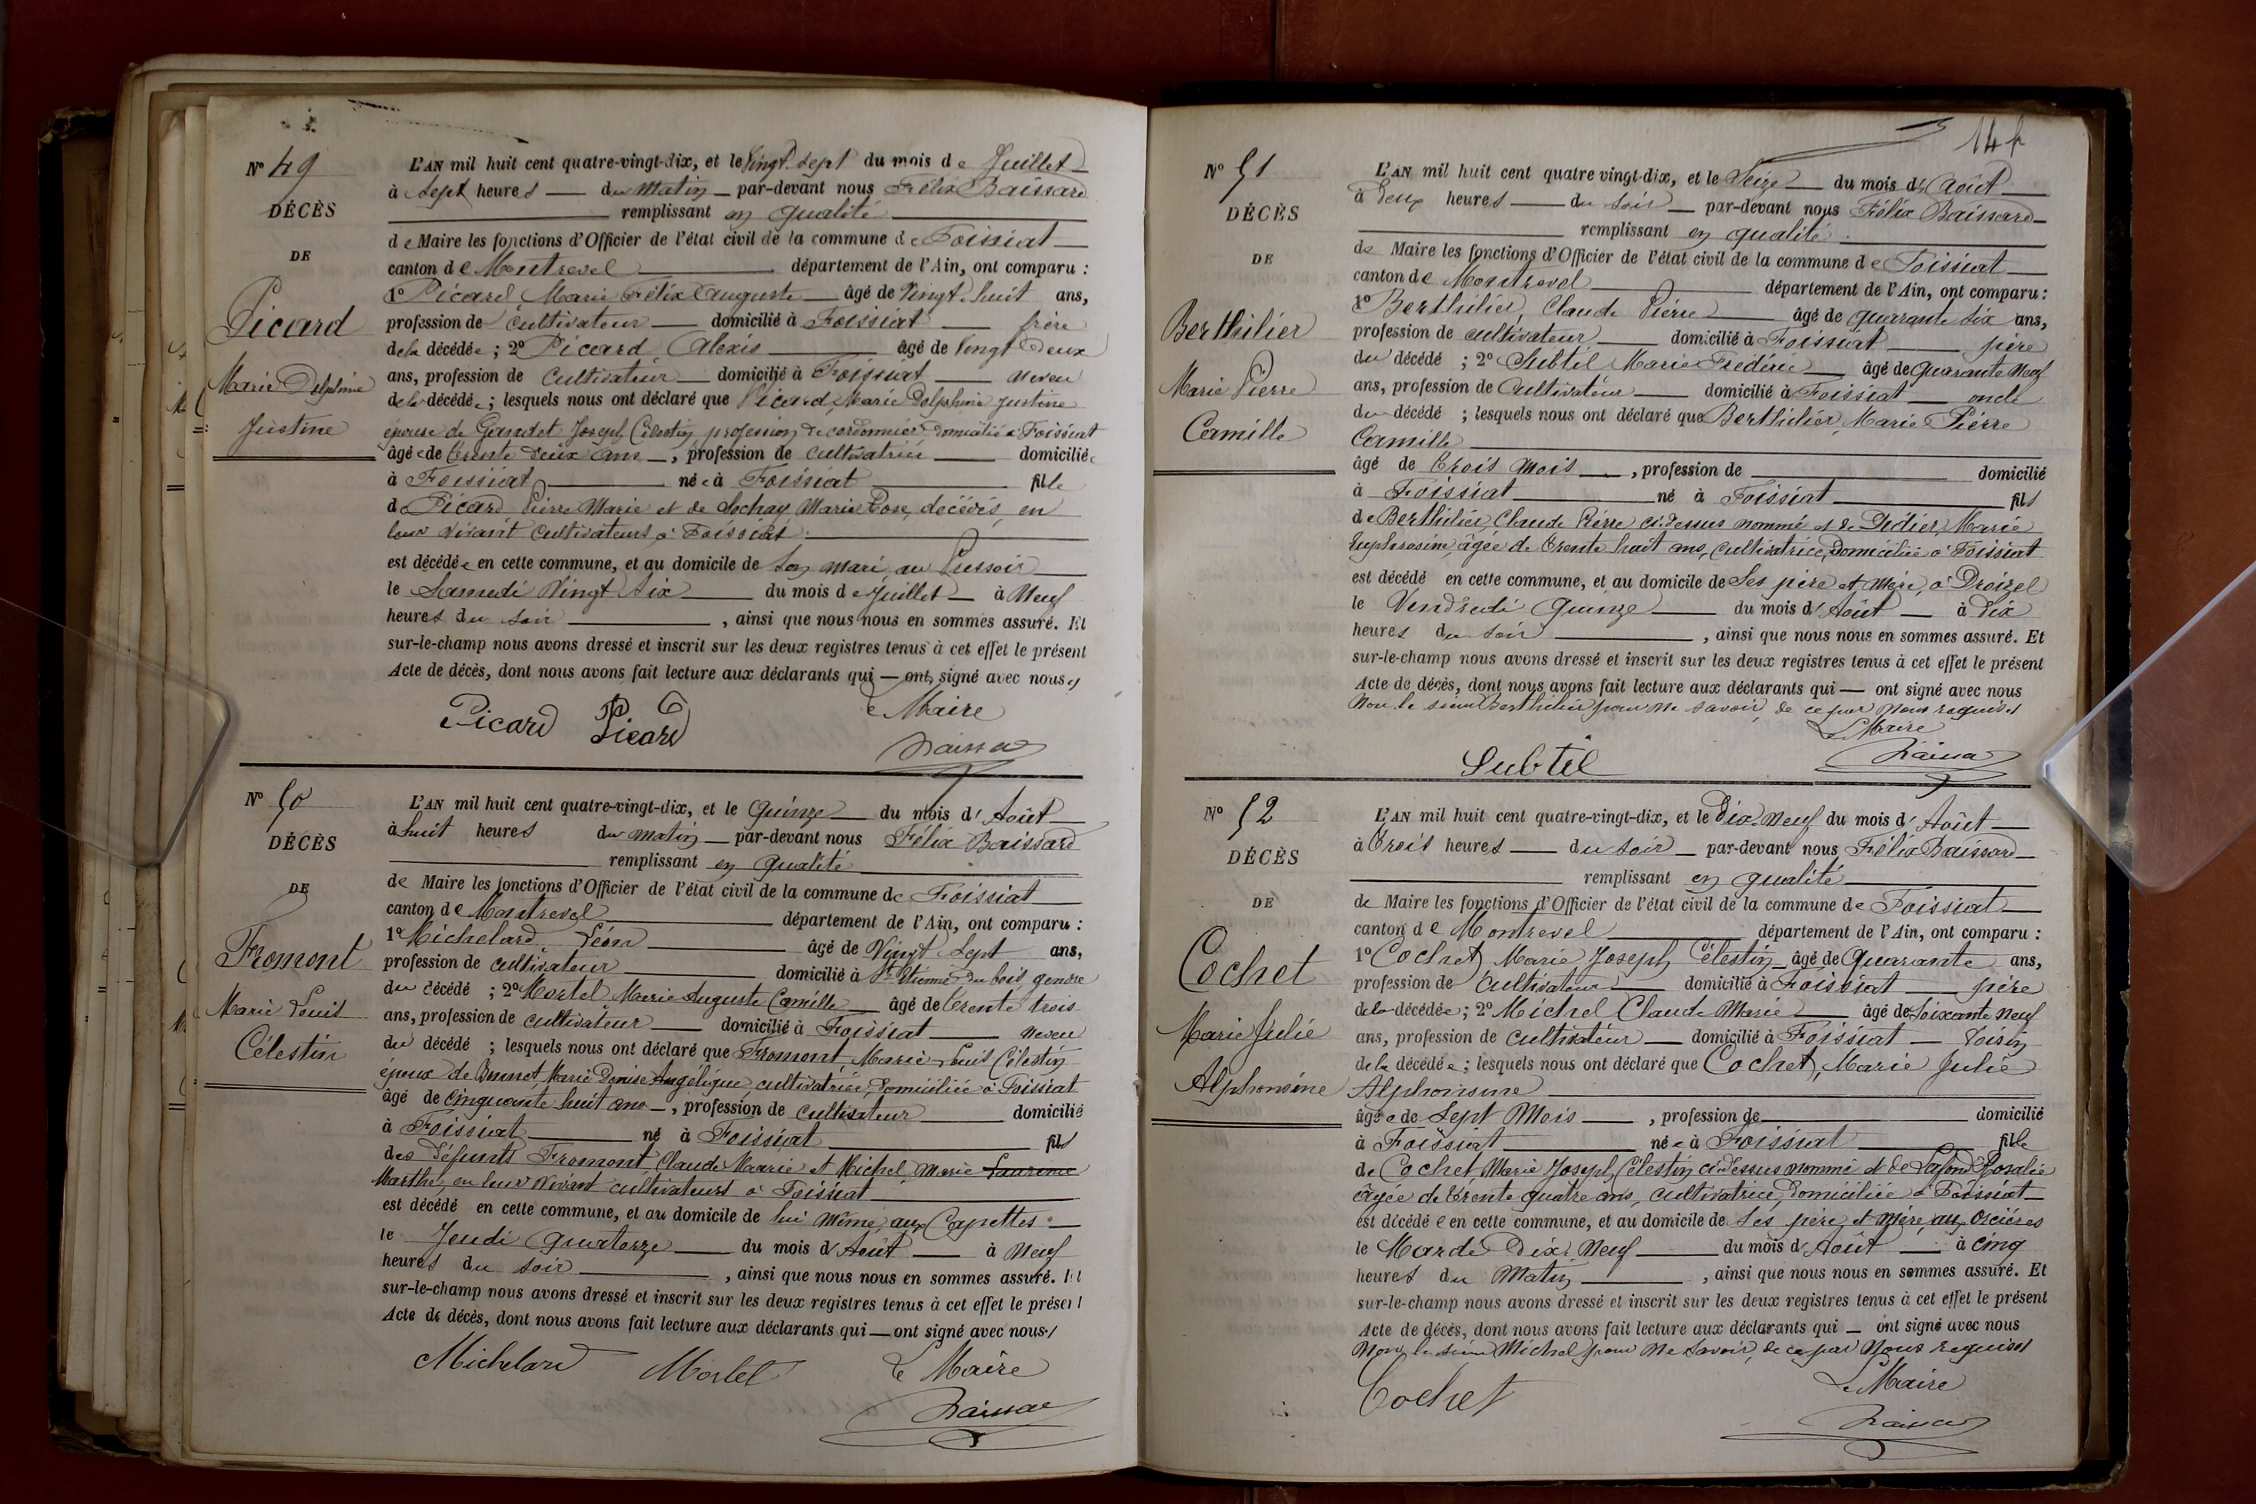 N° 49
DÉCÈS
DE
Picard
Marie Delphine
Justine
L'AN mil huit cent quatre-vingt-dix, et le Vingt-sept du mois de Juillet
à sept heures du matin par-devant nous Félix Baissard
remplissant en qualité
de Maire les fonctions d'Officier de l'état civil de la commune de Foissiat
canton de Montrevel département de l'Ain, ont comparu :
1° Picard, Marie Félix Auguste âgé de Vingt-huit ans,
profession de cultivateur domicilié à Foissiat frère
de la décédée ; 2° Picard, Alexis âgé de Vingt deux
ans, profession de Cultivateur domicilié à Foissiat neveu
de la décédée ; lesquels nous ont déclaré que Picard, Marie Delphine Justine
épouse de Gandet Joseph Célestin profession de cordonnier domicilié à Foissiat
âgée de trente deux ans, profession de cultivatrice domiciliée
à Foissiat née à Foissiat fille
de Picard Pierre Marie et de Sochay Marie Rose, décédés, en
leur vivant cultivateurs à Foissiat
est décédée en cette commune, et au domicile de son mari, au Pressoir
le Samedi Vingt six du mois de Juillet à Neuf
heures du soir, ainsi que nous nous en sommes assuré. Et
sur-le-champ nous avons dressé et inscrit sur les deux registres tenus à cet effet le présent
Acte de décès, dont nous avons fait lecture aux déclarants qui ont signé avec nous
Picard Picard
Le Maire
N° 50
DÉCÈS
DE
Fromont
Marie Louis
Célestin
L'AN mil huit cent quatre-vingt-dix, et le Quinze du mois d'Août
à huit heures du matin par-devant nous Félix Baissard
remplissant en qualité
de Maire les fonctions d'Officier de l'état civil de la commune de Foissiat
canton de Montrevel département de l'Ain, ont comparu :
1° Michelard, Léon âgé de Vingt Sept ans,
profession de cultivateur domicilié à St Etienne du bois, gendre
du décédé ; 2° Mortel Marie Auguste Camille âgé de trente trois
ans, profession de cultivateur domicilié à Foissiat neveu
du décédé ; lesquels nous ont déclaré que Fromont, Marie Louis Célestin
époux de Brunet Marie Denise Angélique, cultivatrice, domiciliée à Foissiat
âgé de cinquante huit ans, profession de cultivateur domicilié
à Foissiat né à Foissiat fils
des défunts Fromont Claude Marie et Michel, Marie
Marthe, en leur vivant cultivateurs à Foissiat
est décédé en cette commune, et au domicile de lui même, aux Capettes
le Jeudi Quatorze du mois d'Août à Neuf
heures du soir, ainsi que nous nous en sommes assuré. Et
sur-le-champ nous avons dressé et inscrit sur les deux registres tenus à cet effet le présent
Acte de décès, dont nous avons fait lecture aux déclarants qui ont signé avec nous
Michelard Mortel Le Maire
N° 51
DÉCÈS
DE
Berthilier
Marie Pierre
Camille
L'AN mil huit cent quatre vingt-dix, et le Seize du mois d'Août
à Deux heures du soir par-devant nous Félix Baissard
remplissant en qualité
de Maire les fonctions d'Officier de l'état civil de la commune de Foissiat
canton de Montrevel département de l'Ain, ont comparu :
1° Berthilier, Claude Pierre âgé de quarante six ans,
profession de cultivateur domicilié à Foissiat père
du décédé ; 2° Subtil Marie Frédéric âgé de Quarante Neuf
ans, profession de Cultivateur domicilié à Foissiat oncle
du décédé ; lesquels nous ont déclaré que Berthilier, Marie Pierre
Camille
âgé de trois mois, profession de domicilié
à Foissiat né à Foissiat fils
de Berthilier, Claude Pierre ci-dessus nommé et de Didier, Marie
Euphrosine, âgée de trente huit ans, cultivatrice, domiciliée à Foissiat
est décédé en cette commune, et au domicile de ses père et mère, à Droizel
le Vendredi Quinze du mois d'Août à dix
heures du soir, ainsi que nous nous en sommes assuré. Et
sur-le-champ nous avons dressé et inscrit sur les deux registres tenus à cet effet le présent
Acte de décès, dont nous avons fait lecture aux déclarants qui ont signé avec nous
Non le sieur Berthilier pour ne savoir, de ce par nous requis
Le Maire
Subtil
N° 52
DÉCÈS
DE
Cochet
Marie Julie
Alphonsine
L'AN mil huit cent quatre-vingt-dix, et le Dix-Neuf du mois d'Août
à trois heures du soir par-devant nous Félix Baissard
remplissant en qualité
de Maire les fonctions d'Officier de l'état civil de la commune de Foissiat
canton de Montrevel département de l'Ain, ont comparu :
1° Cochet, Marie Joseph Célestin âgé de Quarante ans,
profession de Cultivateur domicilié à Foissiat père
de la décédée ; 2° Michel Claude Marie âgé de Soixante Neuf
ans, profession de cultivateur domicilié à Foissiat Voisin
de la décédée ; lesquels nous ont déclaré que Cochet, Marie Julie
Alphonsine
âgée de Sept Mois, profession de domicilié
à Foissiat née à Foissiat fille
de Cochet, Marie Joseph Célestin ci-dessus nommé et de Lafond Rosalie
âgée de trente quatre ans, cultivatrice, domiciliée à Foissiat
est décédée en cette commune, et au domicile de ses père et mère, aux
le Mardi Dix Neuf du mois d'Août à cinq
heures du Matin, ainsi que nous nous en sommes assuré. Et
sur-le-champ nous avons dressé et inscrit sur les deux registres tenus à cet effet le présent
Acte de décès, dont nous avons fait lecture aux déclarants qui ont signé avec nous
Non le sieur Michel pour ne savoir, de ce par nous requis
Cochet
Le Maire